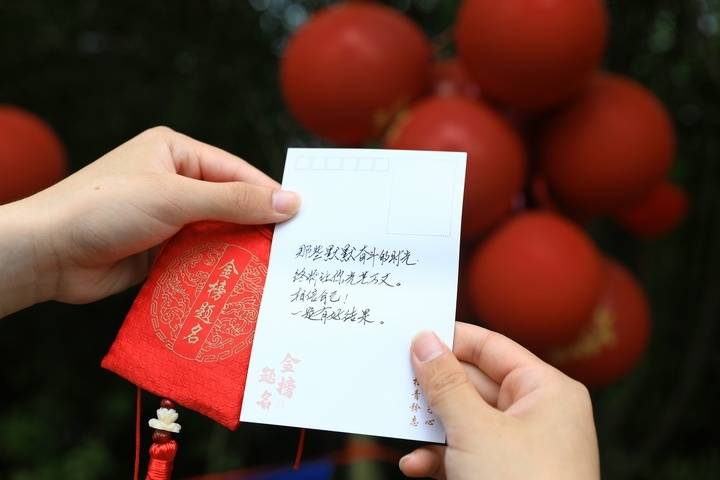 那些默默奋斗的时光
终将让你光芒万丈。
相信自己！
一定有好结果。
金榜
题名
金榜题名